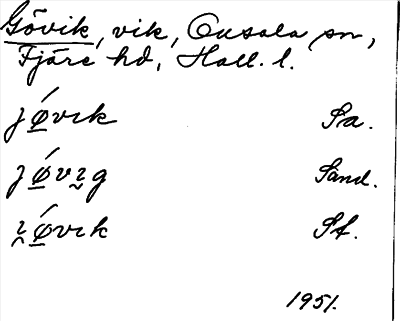 Gövik, vik, Onsala sn,
Fjäre hd, Hall. l.
jǿ̲vık Sa.
jǿ̲vı̰g Sand.
ı̯ǿ̲vık Sf.
1951.